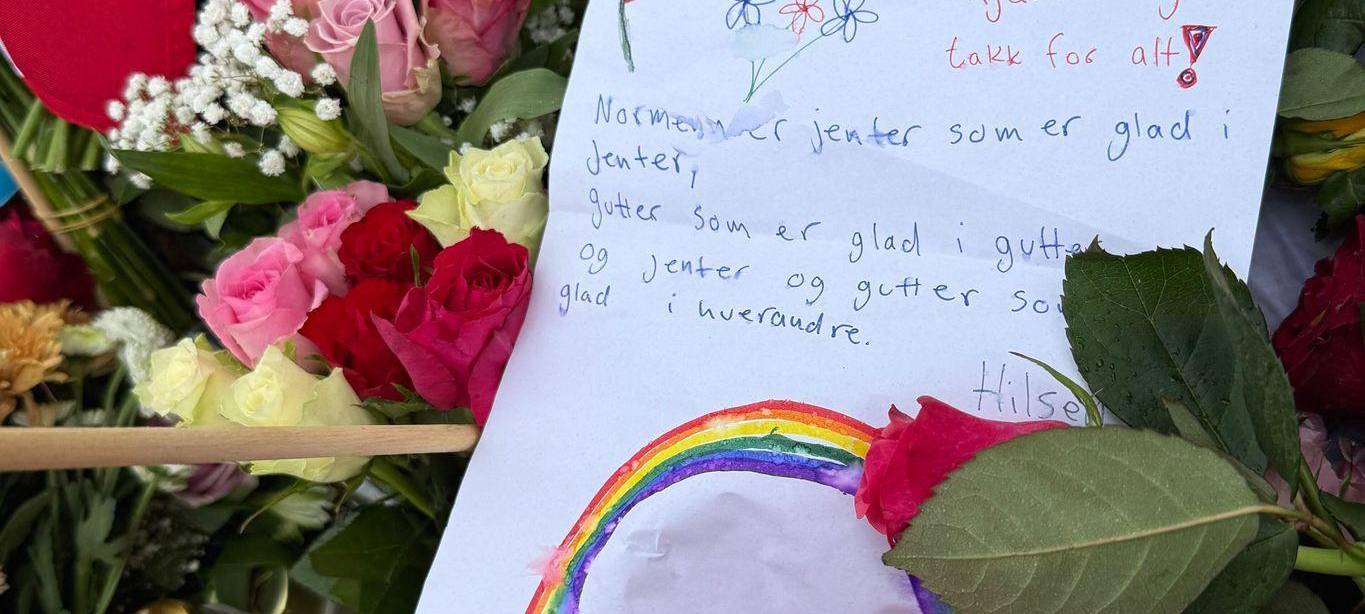 takk for alt!
Normenn er jenter som er glad i
jenter,
gutter som er glad i gutte
og jenter og gutter so
glad i hverandre.
Hilse